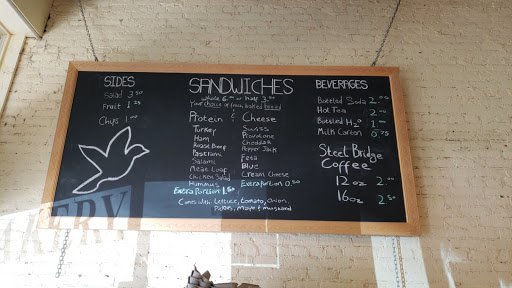 SIDES
Salad 3.50
Fruit 1.25
Chips 1.00
SANDWICHES
whole 6.00 or half 3.50
Your choice of fresh baked bread
Protein & Cheese
Turkey
Ham
Roast Beef
Pastrami
Salami
Meat Loaf
Chicken Salad
Hummus
Extra Portion 1.50
Swiss
Provolone
Cheddar
Pepper Jack
Feta
Blue
Cream Cheese
Extra Portion 0.50
Comes with Lettuce, tomato, onion,
Pickles, Mayo & mustard
BEVERAGES
Bottled Soda 2.00
Hot Tea 2.00
Bottled H2O 1.00
Milk Carton 0.75
Steel Bridge
Coffee
12oz 2.00
16oz 2.50
ERY